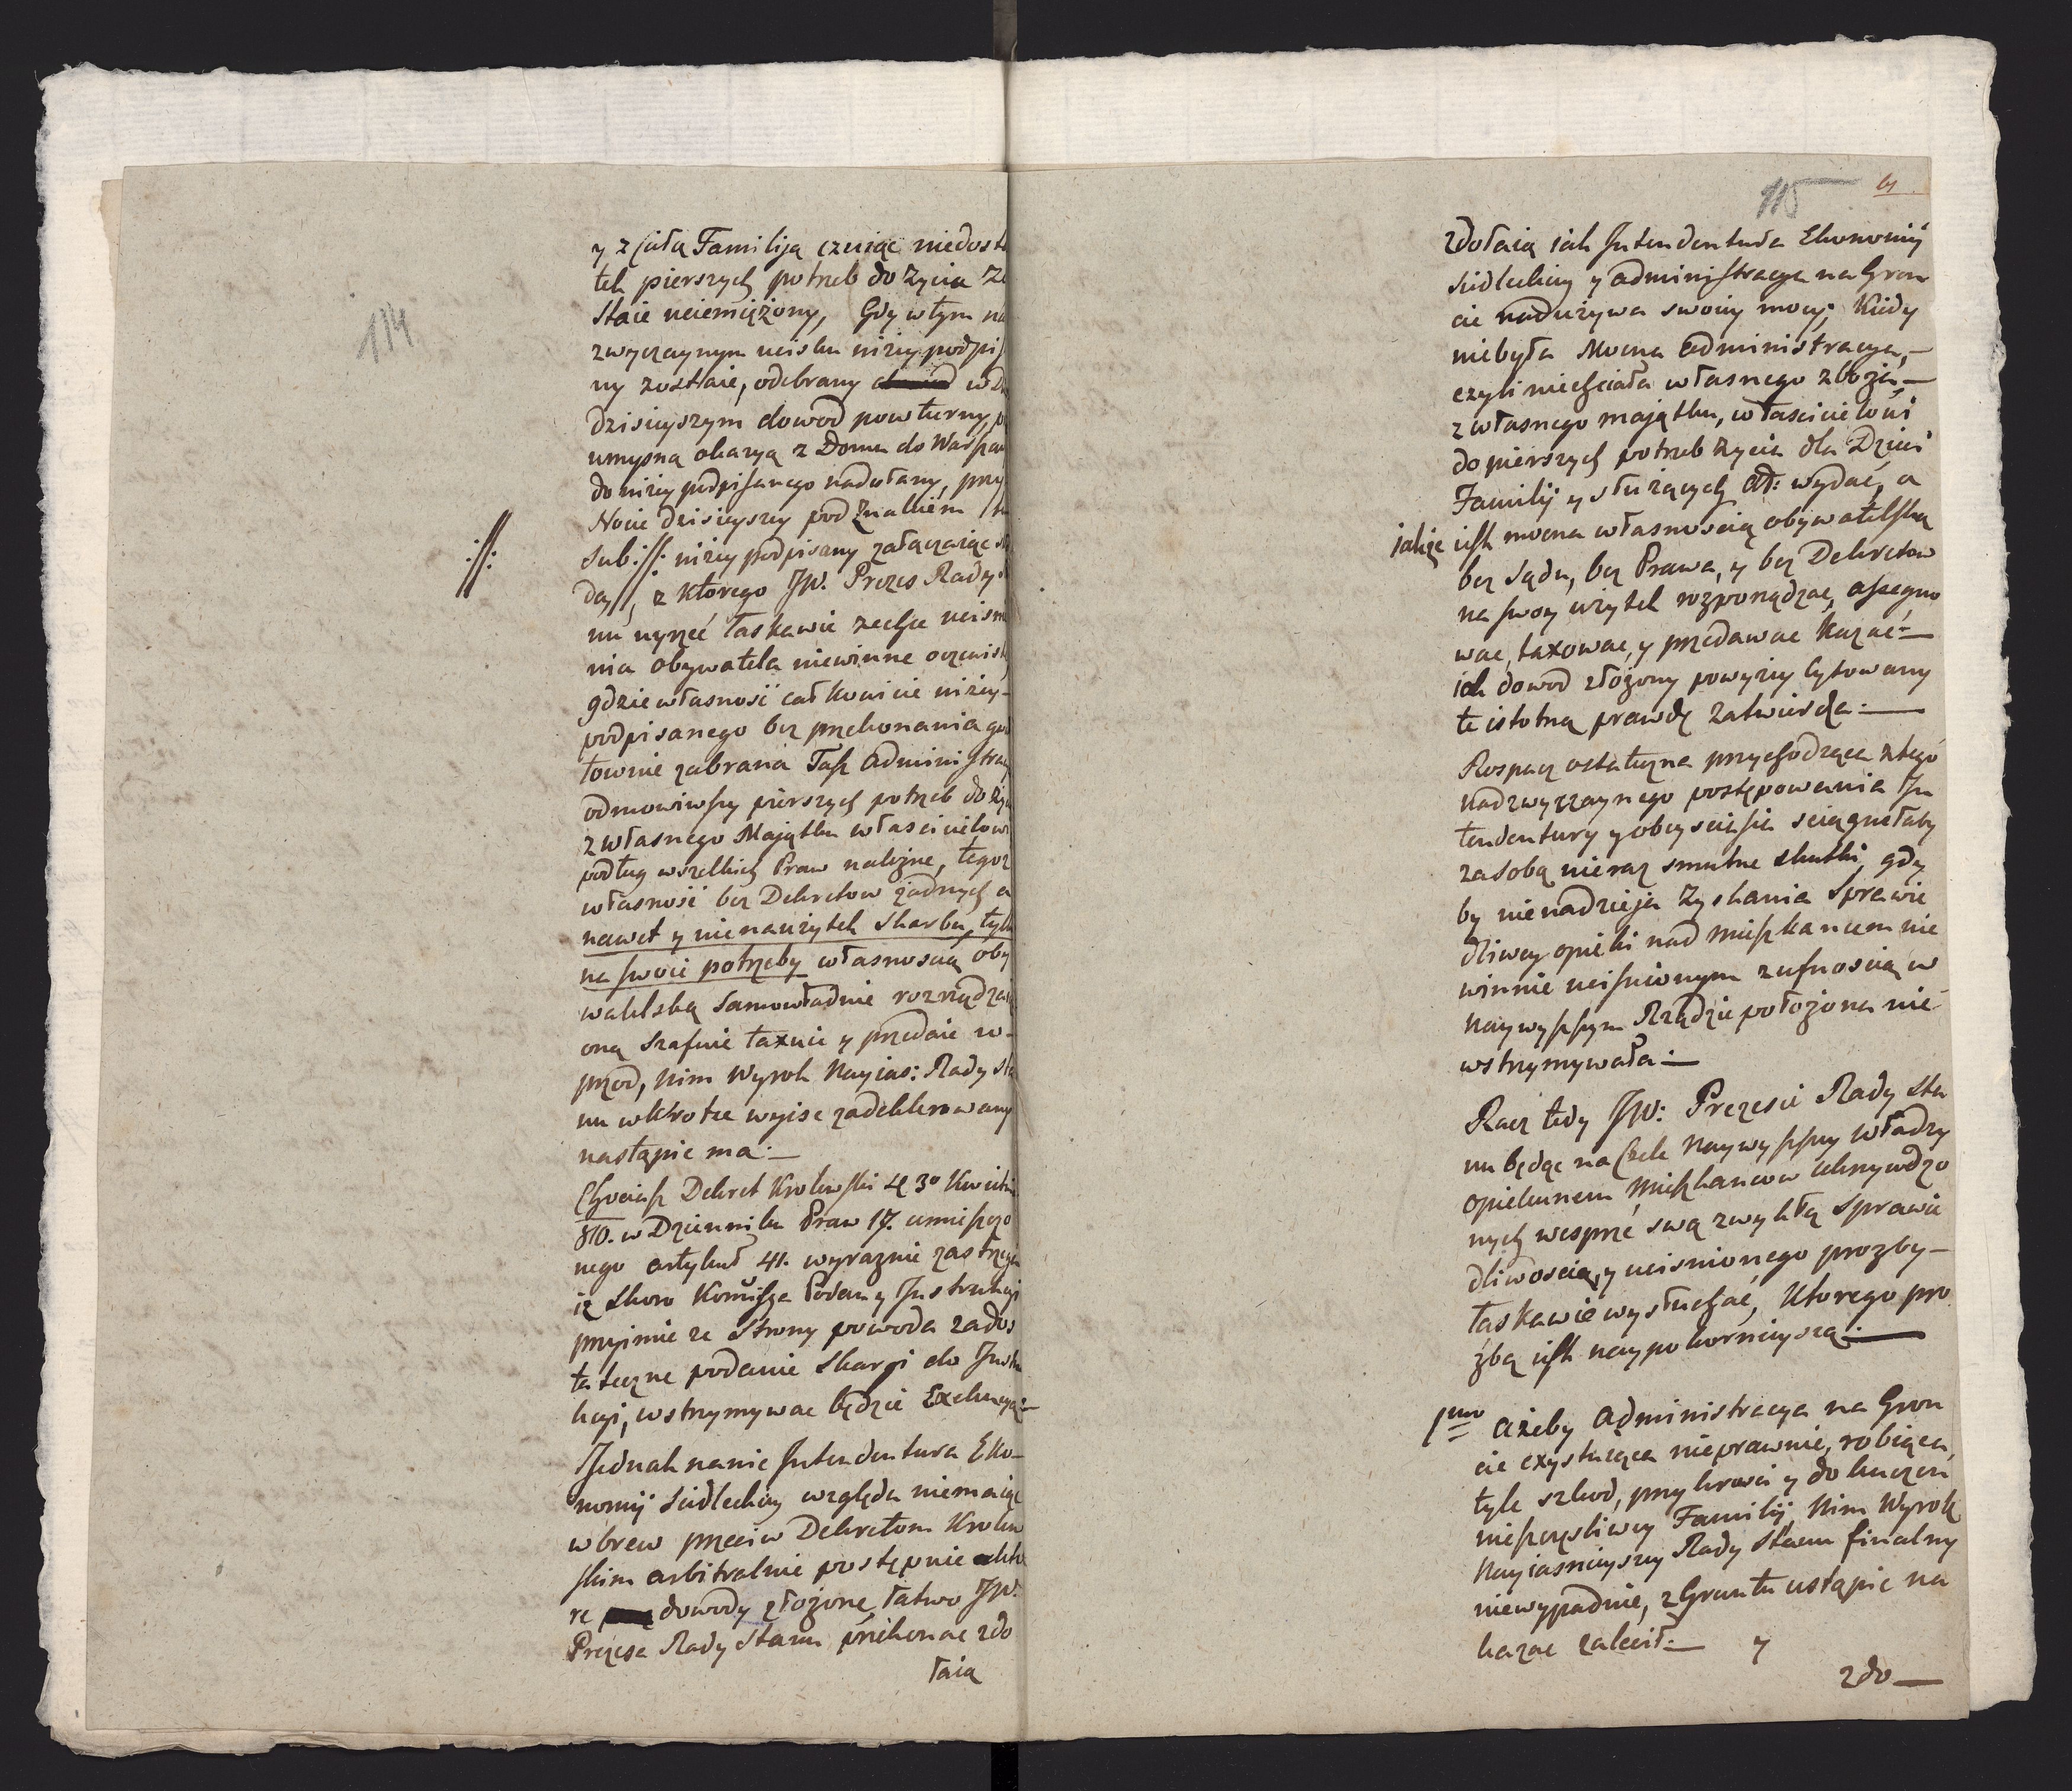 114
y z całą Familiją czuiąc niedost
tek pierszych potrzeb do Zycia Zo
staie uciemiężony, Gdy w tym na
zwyczaynym ucisku niżey podpis
ny zostaie, odebrany w D
dzisieyszym dowod powturny, p
umysną okazyą z Domu do Warszaw
do niżey podpisanego nadesłany, przy
Nocie dzisieyszey pod Znakiem
sub ://: niżey podpisany załączaiąc
://:
da //, z ktorego JW. Prezes Rady
nu uyrzeć łaskawie zechce ucisnie
nia obywatela niewinne oczewist
gdzie własność całkowicie niżey-
podpisanego bez przekonania gwa
townie zabrana Taż administrac
odmowiwszy pierszych potrzeb do życ
z własnego Maiątku własicielowi
podług wszelkich Praw należne, tegoz
własność bez Dekretow żadnych a
nawet y nie na użytek Skarbu, tylk
na swoie potrzeby własnoscią oby
watelską samowładnie rozrządza
oną szafuie taxuie y przedaie w-
przod, nim Wyrok Nayias: Rady sta
nu wkrotce wyisc zadeklerowany
nastąpic ma :—
Chociasz Dekret Krolewski 30 Kwietn
810. w Dzienniku Praw 17. umieszczo
nego artykuł 41. wyraznie zastrzega
iz skoro Komissya Podany Instrukcyi
przyimie ze strony powoda zados
tateczne podanie skargi do Instru
kcyi, wstrzymywac będzie Exekucyą:—
Jednak na nic Intendentura Eko-
nomij Siedleckiey względu niemaiąc
wbrew przeciw Dekretom Krolew
skim arbitralnie postępuie kto
re dowody złożone łatwo JW:
Prezesa Rady Stanu przekonac zdo
łaią
115
zdołaią iak Intendentura Ekonomij
Siedleckiey y administracya na Grun
cie nadużywa swoiey mocy; Kiedy
niebyła Mocna administracya,—
czyli niechciała własnego zboża—
z własnego maiątku, własicielowi
do pierszych potrzeb życia dla Dzieci
Familij y służących &: wydać, a
iakże iest mocna własnoscią obywatelską
bez Sądu, bez Prawa, y bez Dekretow
na swoy użytek rozporządzac, assegno
wac, taxowac, y przedawac kazac:—
iak dowod złożony powyżey cytowany
te istotną prawdę zatwierdza:—
Rospacz ostateczna przychodząca z tego
nadzwyczaynego postępowania In
tendentury y obeyscia się sciągnełaby
za sobą nie raz smutne skutki, gdy
by nie nadzieja zyskania Sprawie
dliwey opieki nad mieszkancem nie
winnie ucisnionym z ufnoscią w
naywyszszym Rządzie położona nie
wstrzymywała:—
Racz tedy JW: Prezesie Rady Sta
nu będąc na Czele naywyszszey władzy
opiekunem Mieszkancow ukrzywdzo
nych wesprzć swą zwykłą Sprawie
dliwoscią, y ucisnionego prozby—
łaskawie wysłuchać, ktorego pro
źbą iest naypokornieyszą:—
1mo ażeby administracya na Grun
cie exystuiąca nieprawnie, robiąca
tyle szkod, przykrosci y dokuczen
nieszczęsliwey Familij, nim Wyrok
Nayiasnieyszey Rady Stanu finalny
niewypadnie, z Gruntu ustąpic na
kazac zalecił:— y
zdo—